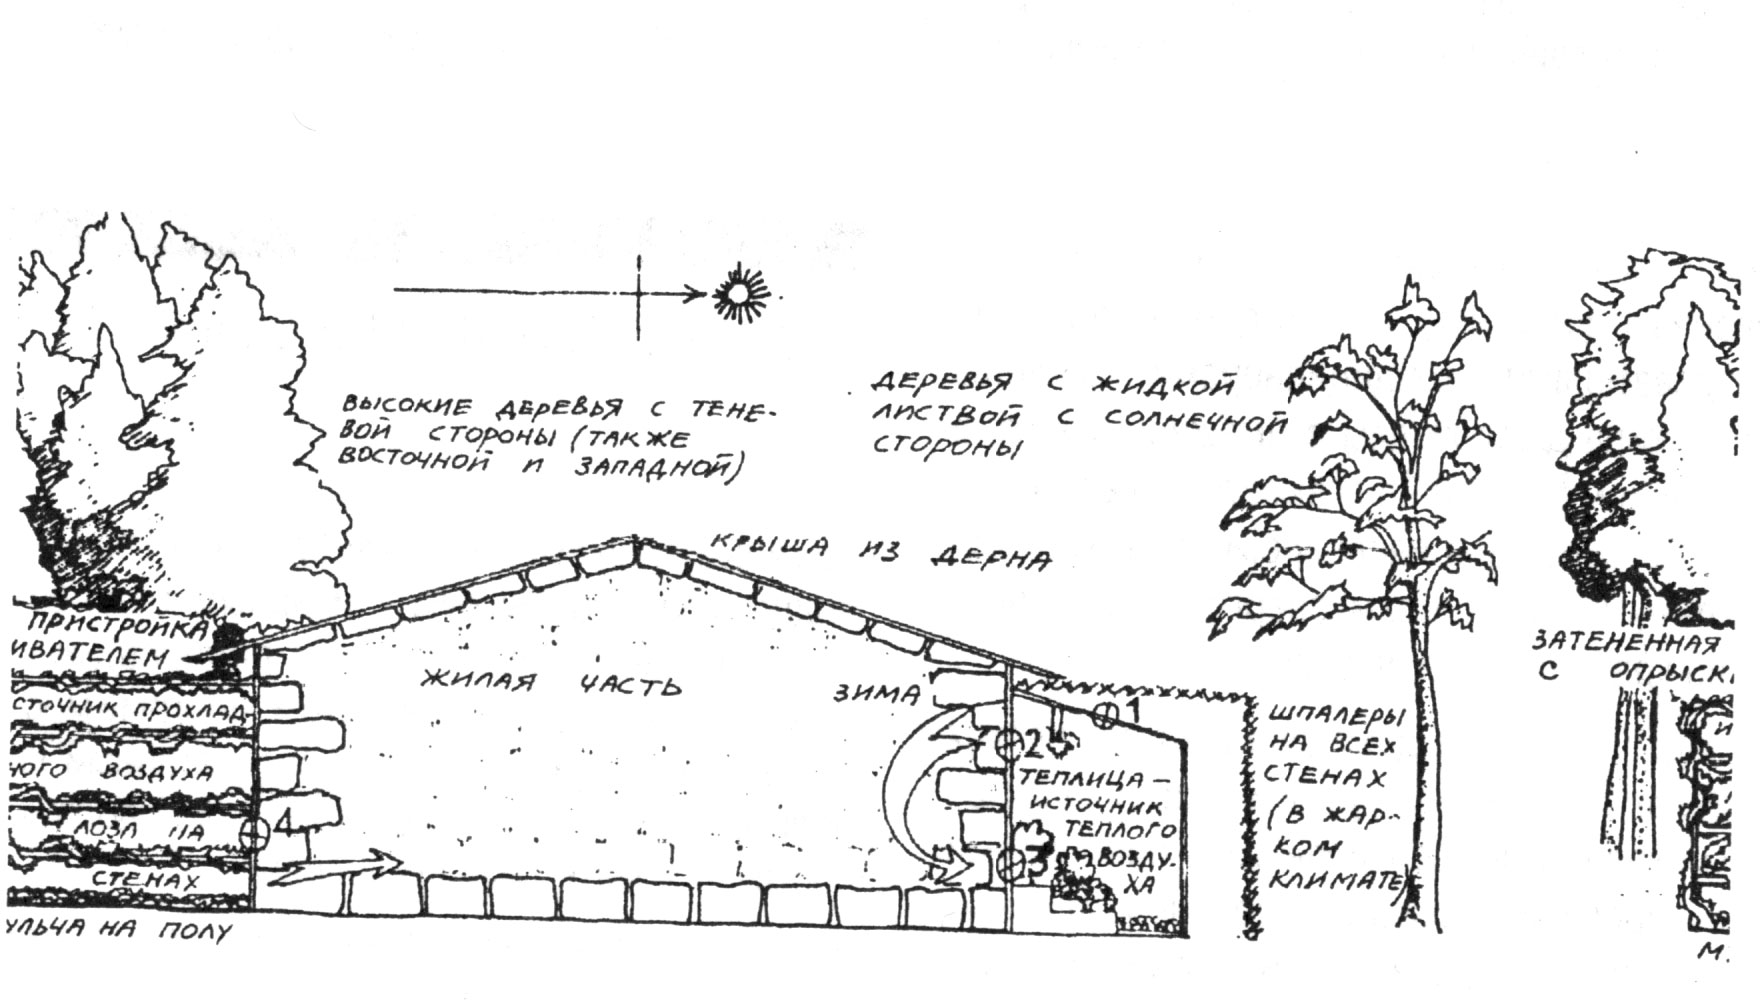 ВЫСОКИЕ ДЕРЕВЬЯ С ТЕНЕ-
ВОЙ СТОРОНЫ (ТАКЖЕ
ВОСТОЧНОЙ И ЗАПАДНОЙ)
ДЕРЕВЬЯ С ЖИДКОЙ
ЛИСТВОЙ С СОЛНЕЧНОЙ
СТОРОНЫ
КРЫША ИЗ ДЕРНА
ПРИСТРОЙКА
ИВАТЕЛЕМ
СТОЧНИК ПРОХЛАД-
НОГО ВОЗДУХА
ЛОЗА НА
СТЕНАХ
УЛЬЧА НА ПОЛУ
4
ЖИЛАЯ ЧАСТЬ
ЗИМА
1
2
ТЕПЛИЦА —
ИСТОЧНИК
ТЕПЛОГО
ВОЗДУ-
ХА
3
ШПАЛЕРЫ
НА ВСЕХ
СТЕНАХ
(В ЖАР-
КОМ
КЛИМАТЕ)
ЗАТЕНЕННАЯ
С ОПРЫСК
И
М.